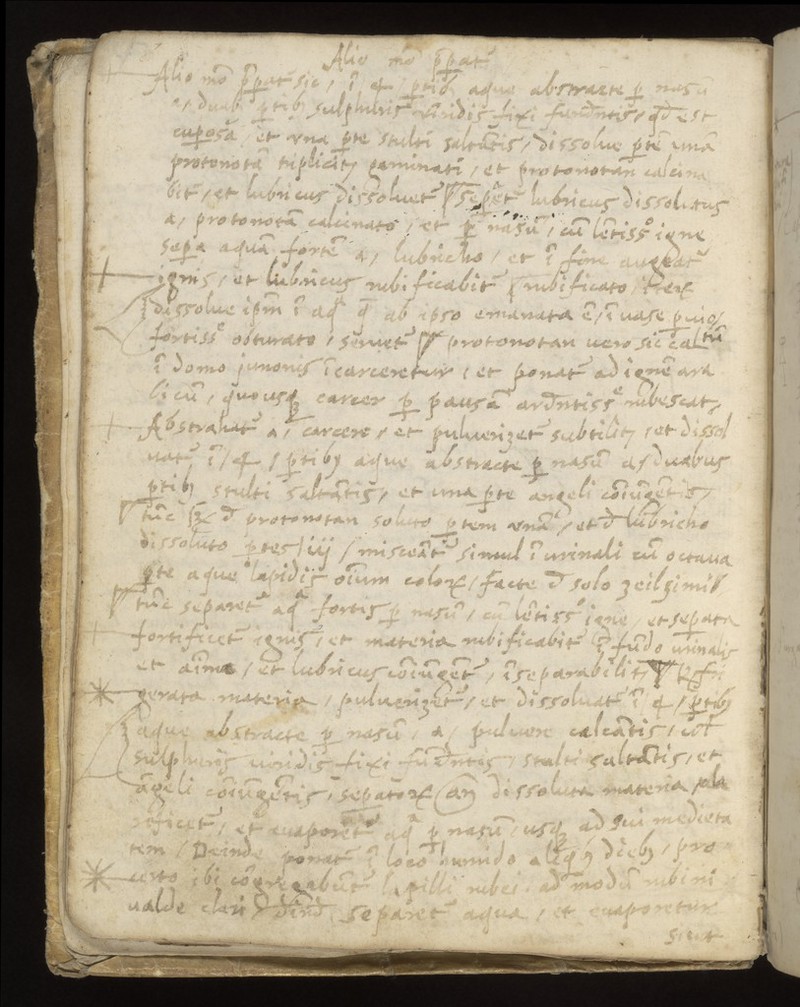 Alio mō p̄pat᷑
Alio mō p̄pat᷑ sic, ī 4 ptib9 aque abstracte p nasū
a, duab9 ptib9 sulphuris viridis fixi fund̄ntis, qd̄ est
cuperosa, et vna pte stulti saltātis, dissolue ptē unā
protonotā triplicit, et protonotan calcina
bit᷑, et lubricus dissoluet᷑ sepet᷑ lubricus dissolutus
a, protonotā calcinato, et p nasū, cū lētiss⁰ igne
sepa aquā fortē a, lubricho, et ī fine augeat᷑
ignis, et lubricus rubificabit᷑ rubificato,
dissolue ipm ī aq̄ q̄ ab ipso emanata ē, ī uase
fortiss⁰ obturato, seruet᷑ protonotan uero sic
ī domo junonis īcarceretur, et ponat᷑ ad ignē ara
licū, quousq carcer p pausā ard̄ntiss⁰ rubescat,
Abstrahat᷑ a, carcere, et puluerizet᷑ subtilit, et dissol
uat᷑ ī 4 ptib9 aque abstracte p nasū a, duabus
ptib9 stulti saltātis, et una pte angeli cōiūgētis,
tūc d̄ protonotan soluto ptem vnā, et d̄ lubricho
dissoluto ptes iij misceāt᷑ simul ī urinali cū octaua
pte aque lapidis oīum color, facte d̄ solo
tūc separet᷑ aq̄ fortis p nasū, cū lētiss⁰ igne, et separata
fortificet᷑ ignis, et materia rubificabit᷑ ī fundo urinalis
et aīma, et lubricus cōiūget᷑, īseparabilit
gerata materia, puluerizet᷑, et dissoluat᷑ ī 4 ptib9
aque abstracte p nasū, a, puluere calcātis,
sulphuris viridis fixi fund̄ntis, stulti saltātis, et
angeli cōiūgētis, dissoluta materia cla
rificet᷑, et euaporet᷑ aq̄ p nasū, usq ad sui medieta
tem, Deinde ponat᷑ ī loco humido dieb9, pro
certo ibi cōgregabūt᷑ lapilli rubei ad modū rubini
ualde clari separet᷑ aqua, et euaporetur